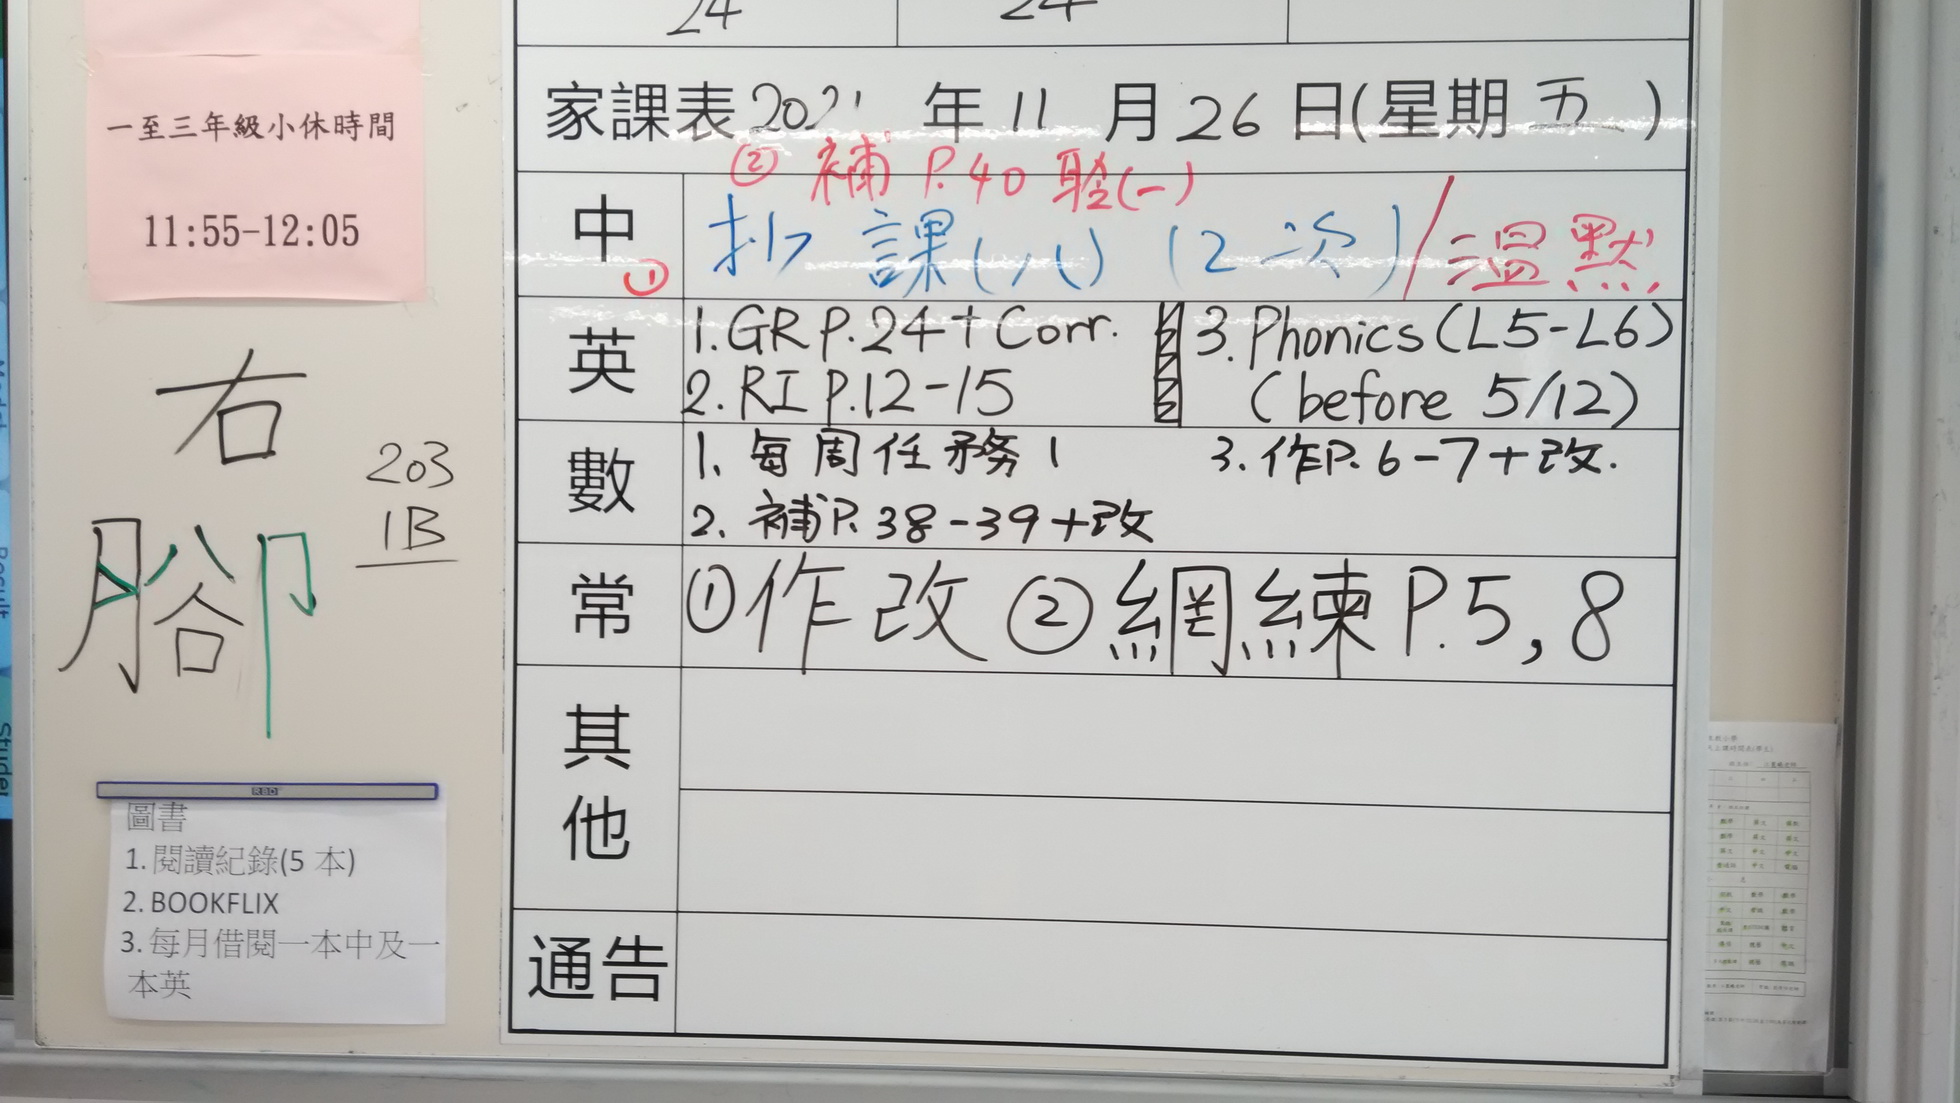 24
24
一至三年級小休時間
11:55-12:05
家課表 2021 年 11 月 26 日(星期 五 )
② 補 P.40 聆(一)
中
① 抄 課(八) (2次) / 溫 默
英
1. GR P.24 + Corr.
3. Phonics (L5-L6)
2. RI P.12-15
(before 5/12)
數
1. 每周任務 1
3. 作P. 6-7+改.
2. 補P. 38-39+改
常
①作改 ②網練 P.5, 8
其他
通告
右
腳
203
1B
RBD
圖書
1. 閱讀紀錄(5 本)
2. BOOKFLIX
3. 每月借閱一本中及一
本英
Result